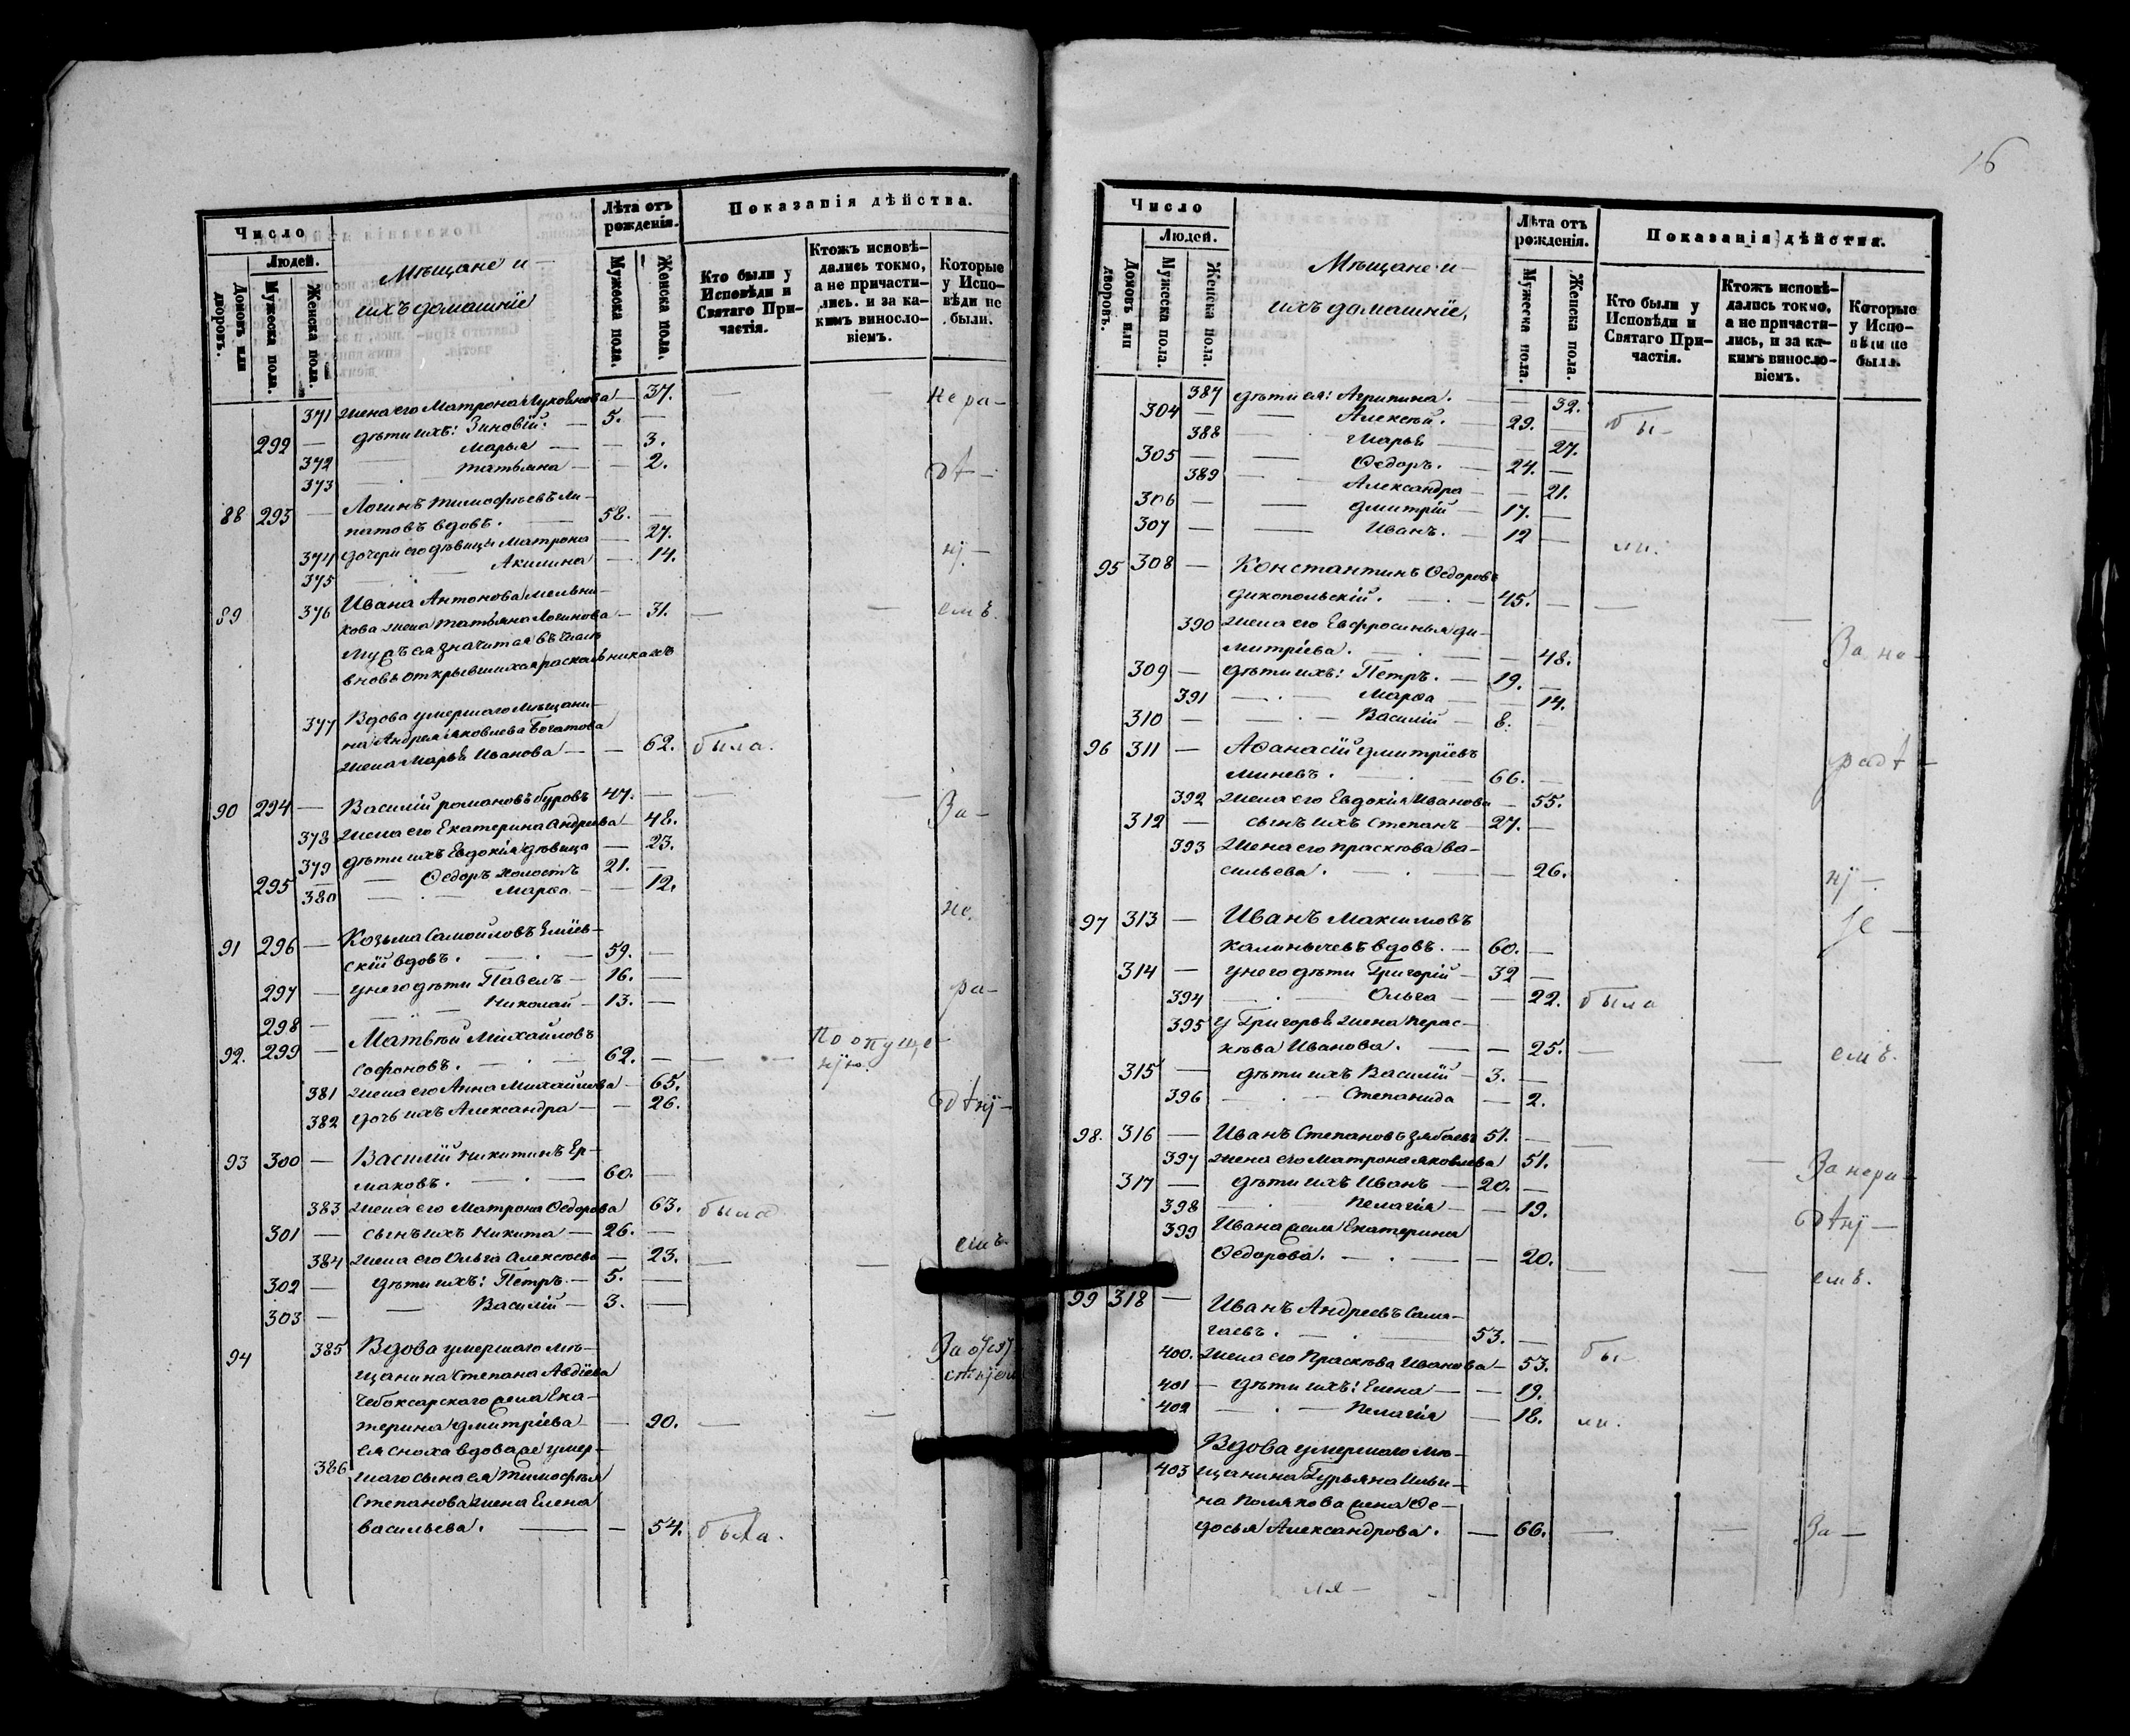 Число
Людей.
Домовъ или дворовъ.
Мужеска пола.
Женска пола.
Мѣщане и
ихъ домашніе
Лѣта отъ рожденія.
Мужеска пола.
Женска пола.
Показанія дѣйства.
Кто были у Исповѣди и Святаго Причастія.
Ктожъ исповѣ-
дались токмо,
а не причасти-
лись. и за ка-
кимъ винословіемъ.
Которые у Испо-
вѣди не были.
371 жена его Матрона — 37. — — Нера-
292 — дѣти ихъ: Зиновій. — 5. —
372 Марья — — 3.
373 Татьяна — — 2.
88 293 — Логинъ Тимофѣевъ Ли-
патовъ вдовъ. — 58. —
374 дочери его дѣвицы Матрона — 27.
375 Акилина — 14.
89 376 Ивана Антонова Мельни-
кова жена Татьяна Логинова — 31. — — емъ.
Мужъ ея значится въ числѣ
вновь открывшихся раскольникахъ
377 Вдова умершаго мѣщани-
на Андрея Яковлева Богатова
жена Марья Иванова — — 62. была.
90 294 — Василій Романовъ Буровъ 47. — — — За-
378 жена его Екатерина Андреева — 48.
379 дѣти ихъ Евдокія дѣвица — 23.
295 — Ѳедоръ холостъ 21. —
380 — Марѳа — — 12.
не
91 296 — Козьма Самойловъ
скій вдовъ. — 59. —
297 — у него дѣти Павелъ — 16. —
ра-
298 — Николай — 13. —
92. 299 — Матвѣй Михайловъ
Софоновъ. — 62. — — — По опуще-
нію.
381 жена его Анна Михайлова — 65.
382 дочь ихъ Александра — — 26.
93 300 — Василій Никитинъ Ер-
маковъ. — 60. —
383 жена его Матрона Ѳедорова 63. была
301 — сынъ ихъ Никита — 26. —
384 жена его Ольга Алексѣева — 23. — — емъ
302 — дѣти ихъ: Петръ. — 5. —
303 — Василій — 3. —
94 385 Вдова умершаго мѣ-
щанина Степана Авдѣева
Чебоксарскаго жена Ека-
терина Дмитріева — 90. — —
За отсут
ствіем
386 ея сноха вдова же умер-
шаго сына ея Тимофѣя
Степанова жена Елена
Васильева. — — 54. была.
16
Число
Людей.
Домовъ или дворовъ.
Мужеска пола.
Женска пола.
Мѣщане и
ихъ домашніе,
Лѣта отъ рожденія.
Мужеска пола.
Женска пола.
Показанія дѣйства.
Кто были у Исповѣди и Святаго Причастія.
Ктожъ исповѣ-
дались токмо,
а не причасти-
лись, и за ка-
кимъ винословіемъ.
Которые у Испо-
вѣди не были.
387 дѣти ея: Агрипина. — 32.
304 — Алексѣй. — 29. — бы-
388 Марья — 27.
305 — Ѳедоръ. — 24. —
389 — Александра — — 21.
306 — Дмитрій — 17. —
307 — Иванъ. — 12 — ли.
95 308 — Константинъ Ѳедоровъ
Дикопольскій. — 45. — —
390 жена его Евфросинья Ди-
митріева. — — 48. За не-
309 — дѣти ихъ: Петръ. — 19. —
391 — Марѳа — 14.
310 — Василій — 8. —
96 311 — Аѳанасій Дмитріевъ
Миневъ. — 66. —
392 жена его Евдокія Иванова — 55.
312 — сынъ ихъ Степанъ — 27. —
393 жена его Прасковья Ва-
сильева. — — 26.
97 313 — Иванъ Максимовъ
Калинычевъ вдовъ. — 60. —
314 — у него дѣти Григорій — 32 —
394 — Ольга — — 22. была
395 у Григорья жена Парас-
кева Иванова. — — 25. — — емъ.
315 — дѣти ихъ Василій — 3. —
396 — Степанида — 2.
98. 316 — Иванъ Степановъ 51. — —
397 жена его Матрона Яковлева 51. — За нера-
317 — дѣти ихъ Иванъ — 20. —
398 Пелагія — — 19.
399 Ивана жена Екатерина
Ѳедорова. — — 20. — — емъ.
99 318 — Иванъ Андреевъ
53. —
400. жена его Прасковья Иванова — 53. бы-
401 — дѣти ихъ: Елена — — 19.
402 — Пелагія — 18. ли.
403 Вдова умершаго мѣ-
щанина Гурьяна Ильи-
на Полякова жена Ѳе-
досья Александрова. — 66. — — За —